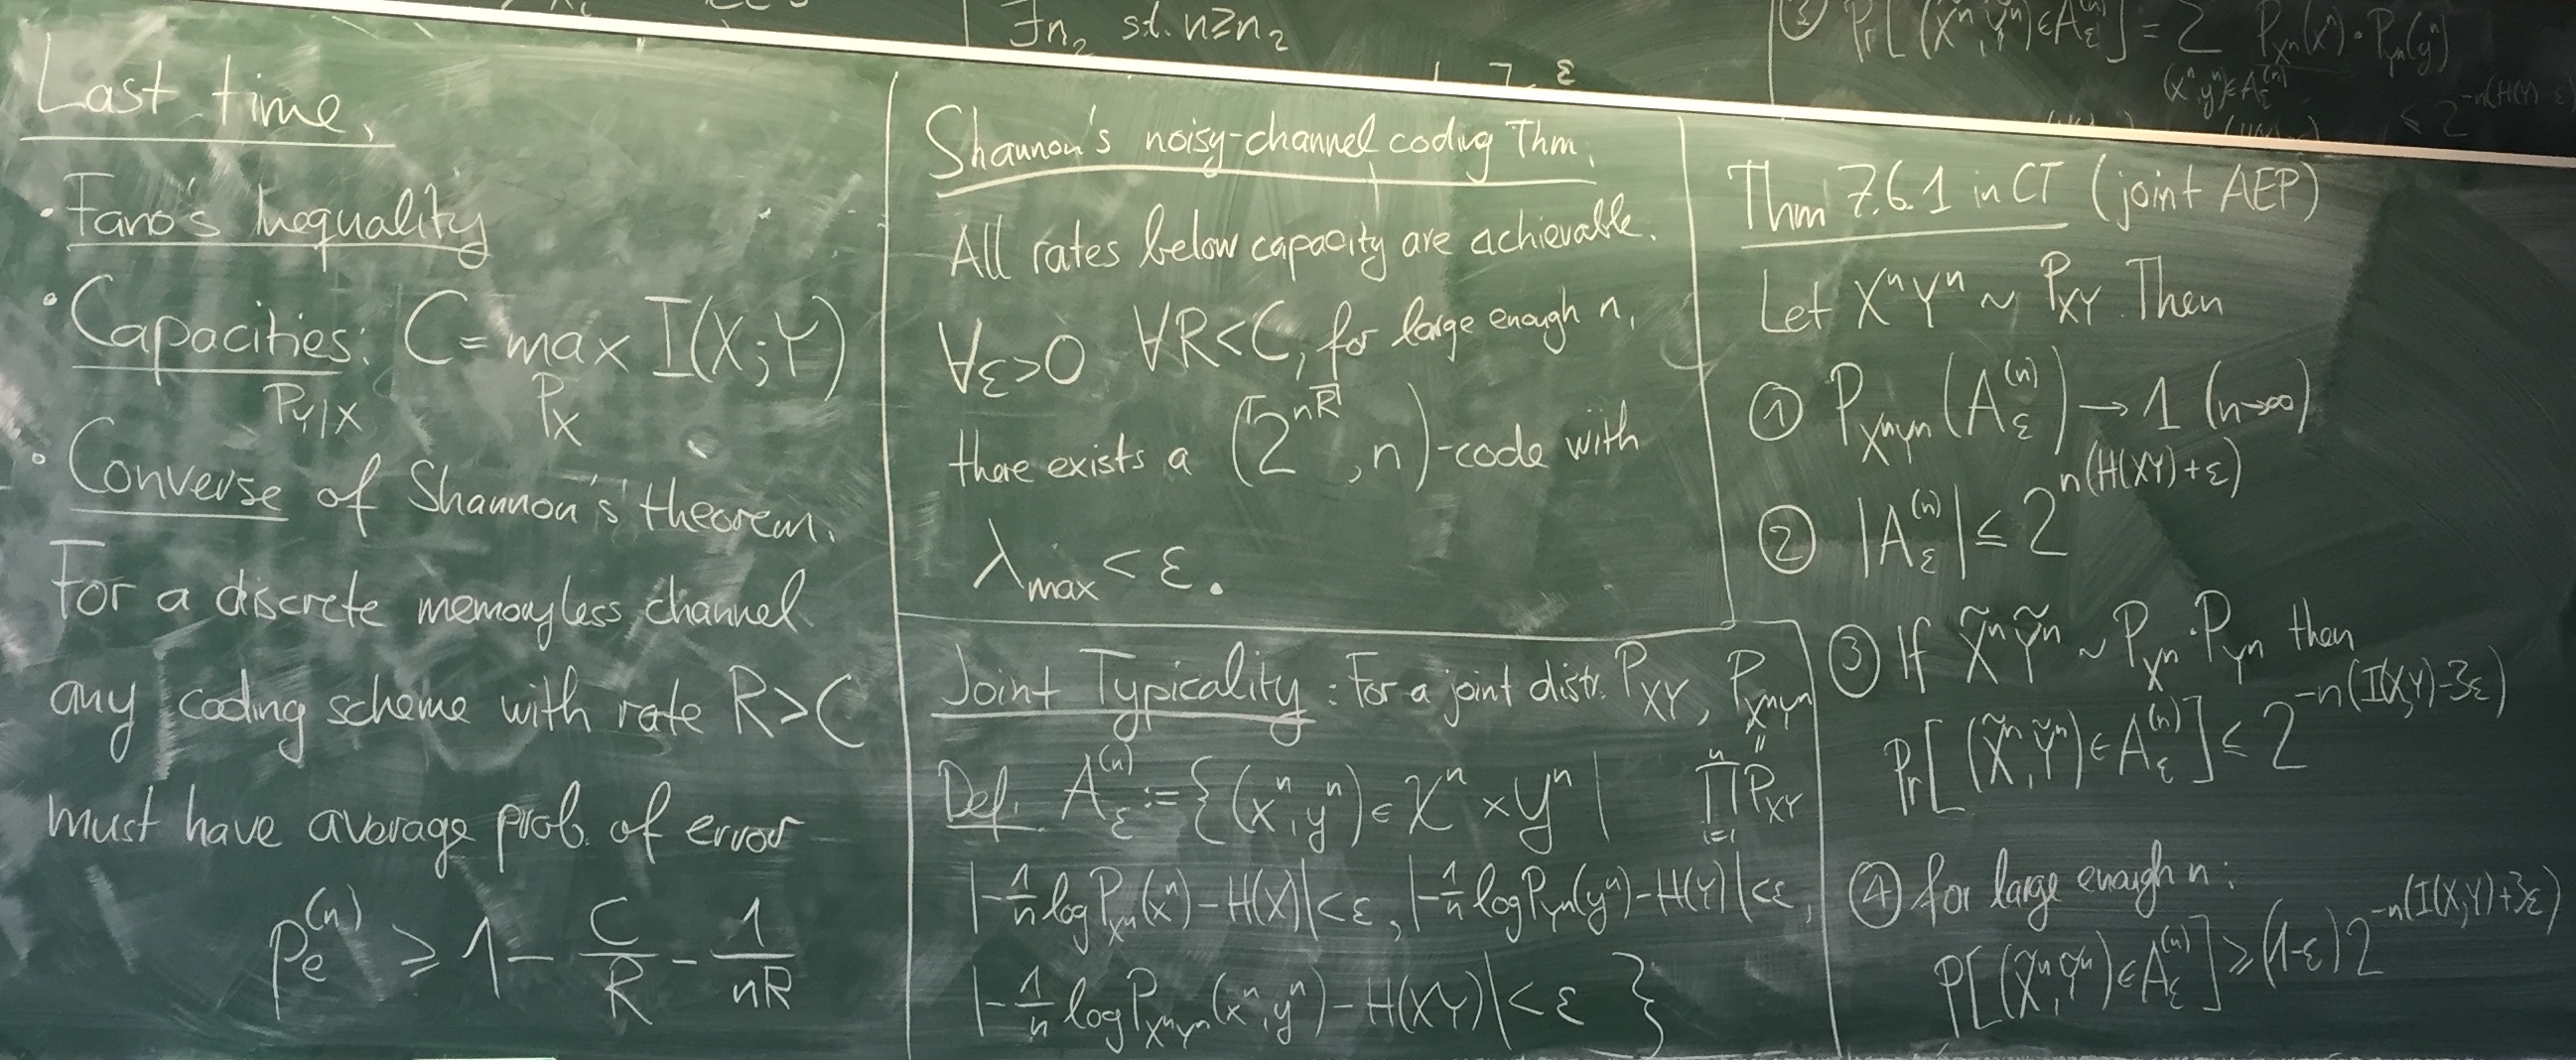 ∃n₂ s.t. n≥n₂
ε
② Pr[(X̃ⁿ,Ỹⁿ)∈A_ε^(n)] = Σ P_Xⁿ(xⁿ)·P_Yⁿ(yⁿ)
(xⁿ,yⁿ)∈A_ε^(n)
≤ 2^-n(H(Y)-ε)
Last time,
• Fano's Inequality
• Capacities: C = max I(X;Y)
P_Y|X P_X
• Converse of Shannon's theorem.
For a discrete memoryless channel
any coding scheme with rate R>C
must have average prob. of error
p_e^(n) ≥ 1 - C/R - 1/nR
Shannon's noisy-channel coding Thm.
All rates below capacity are achievable.
∀ε>0 ∀R<C, for large enough n,
there exists a (2^⌈nR⌉, n)-code with
λ_max < ε.
Joint Typicality: For a joint distr. P_XY, P_XⁿYⁿ
=
Def. A_ε^(n) := {(xⁿ,yⁿ) ∈ 𝒳ⁿ × 𝒴ⁿ | ∏_{i=1}^n P_XY
|-1/n log P_Xⁿ(xⁿ) - H(X)| < ε, |-1/n log P_Yⁿ(yⁿ) - H(Y)| < ε,
|-1/n log P_XⁿYⁿ(xⁿ,yⁿ) - H(XY)| < ε }
Thm 7.6.1 in CT (joint AEP)
Let XⁿYⁿ ~ P_XY. Then
① P_XⁿYⁿ(A_ε^(n)) → 1 (n→∞)
② |A_ε^(n)| ≤ 2^n(H(XY)+ε)
③ If X̃ⁿỸⁿ ~ P_Xⁿ·P_Yⁿ then
Pr[(X̃ⁿ,Ỹⁿ)∈A_ε^(n)] ≤ 2^-n(I(X;Y)-3ε)
④ for large enough n:
P[(X̃ⁿ,Ỹⁿ)∈A_ε^(n)] ≥ (1-ε) 2^-n(I(X;Y)+3ε)